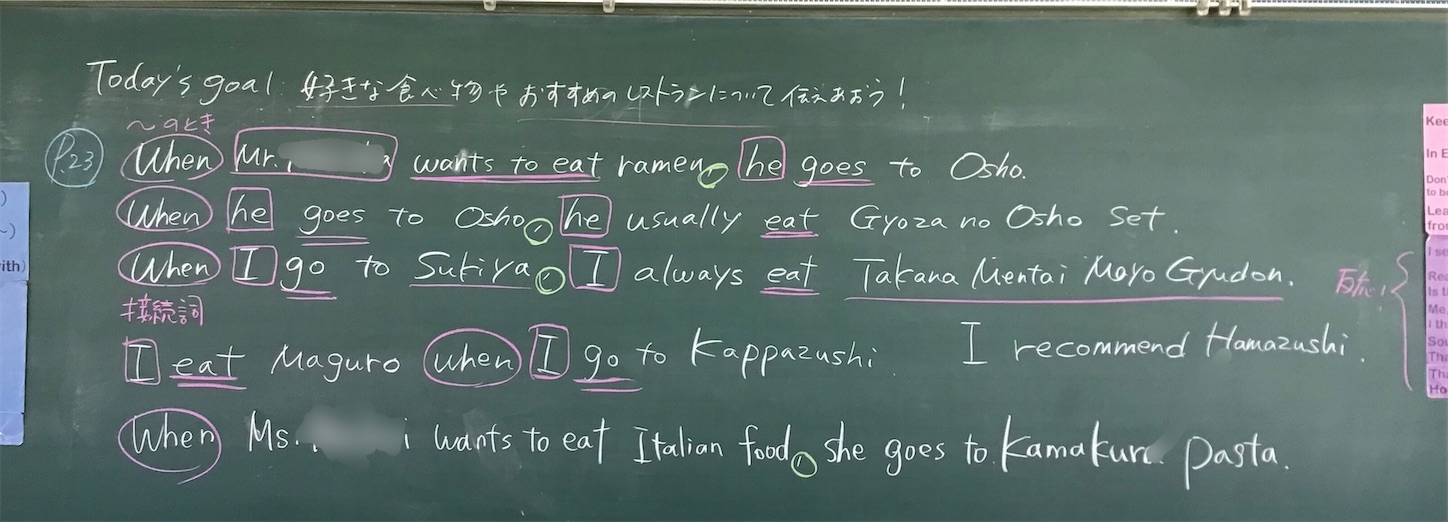 Today's goal: 好きな食べ物やおすすめのレストランについて伝えあおう!
〜のとき
P.23 When Mr. wants to eat ramen, he goes to Osho.
When he goes to Osho, he usually eat Gyoza no Osho Set.
When I go to Sukiya, I always eat Takana Mentai Mayo Gyudon.
接続詞
I eat Maguro when I go to Kappazushi. I recommend Hamazushi.
When Ms. wants to eat Italian food, she goes to Kamakura pasta.
ith)
Kee
In E
Don'
to b
Lea
from
I se
Re
Is t
Me
I th
Sou
Tha
Tha
Ho